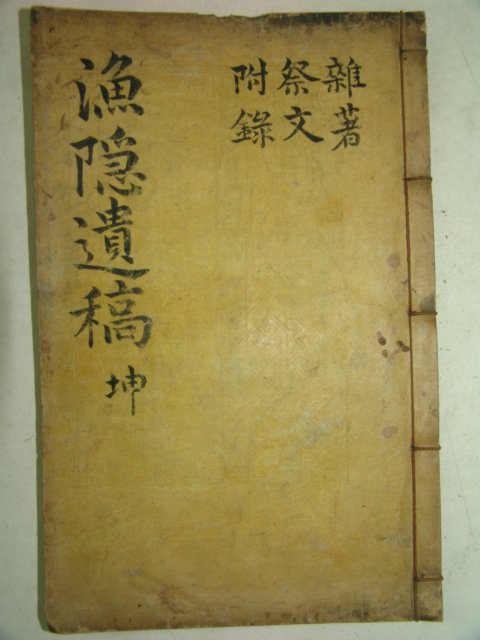 雜著
祭文
附錄
漁隱遺稿 坤